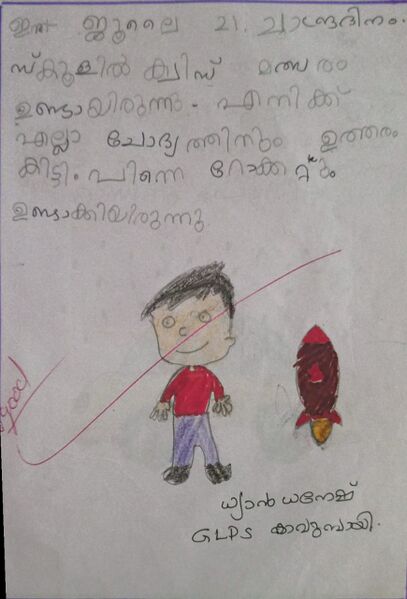 ഇന്ന് ജൂലൈ 21. ചാന്ദ്രദിനം.
സ്കൂളിൽ ക്വിസ് മത്സരം
ഉണ്ടായിരുന്നു. എനിക്ക്
എല്ലാ ചോദ്യത്തിനും ഉത്തരം
കിട്ടി. പിന്നെ റോക്കറ്റും
ഉണ്ടാക്കിയിരുന്നു
good
ധ്യാൻ ധനേഷ്
GLPS കാവുമ്പായി.